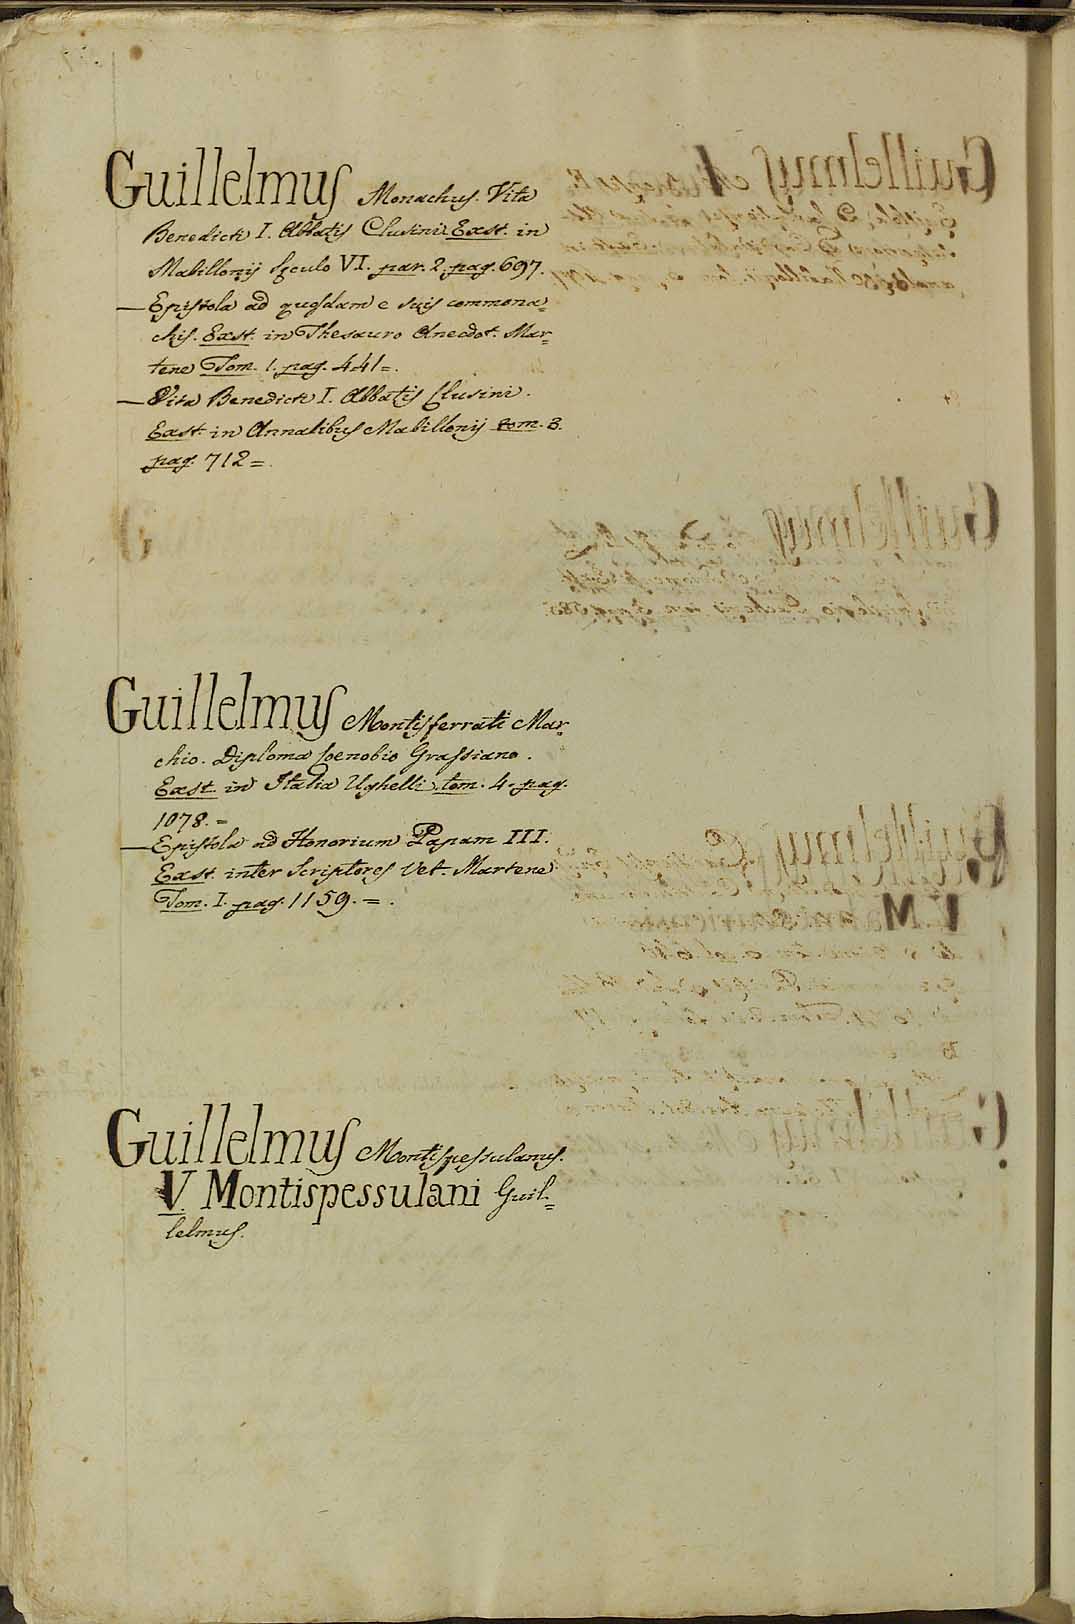 Guillelmus Monachus. Vita
Benedicti I. Abbatis Clusini. Exst. in
Mabillonij Sęculo VI. par. 2. pag. 697.
— Epistola ad quosdam e suis commona=
chis. Exst. in Thesauro Anecdot. Mar=
tene Tom. 1. pag. 441=.
— Vita Benedicti I. Abbatis Clusini.
Exst. in Annalibus Mabillonij tom. 3.
pag. 712=.
Guillelmus Montisferrati Mar=
chio. Diploma Coenobio Grassiano.
Exst. in Italia Ughelli tom. 4. pag.
1078.=
— Epistola ad Honorium Papam III.
Exst. inter Scriptores Vet. Martene
Tom. I. pag. 1159.=.
Guillelmus Montispessulanus.
V. Montispessulani Guil=
lelmus.